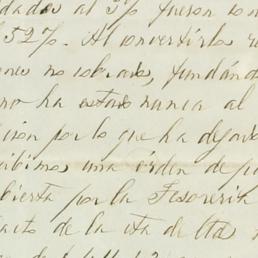 dados al 3% fueron con
527%. Al convertirlo re
no sobrase, fundán
no ha estado nunca al
ción por lo que ha dejado
cibimos una orden de pa
bierta por la Tesoreria
de la cta de